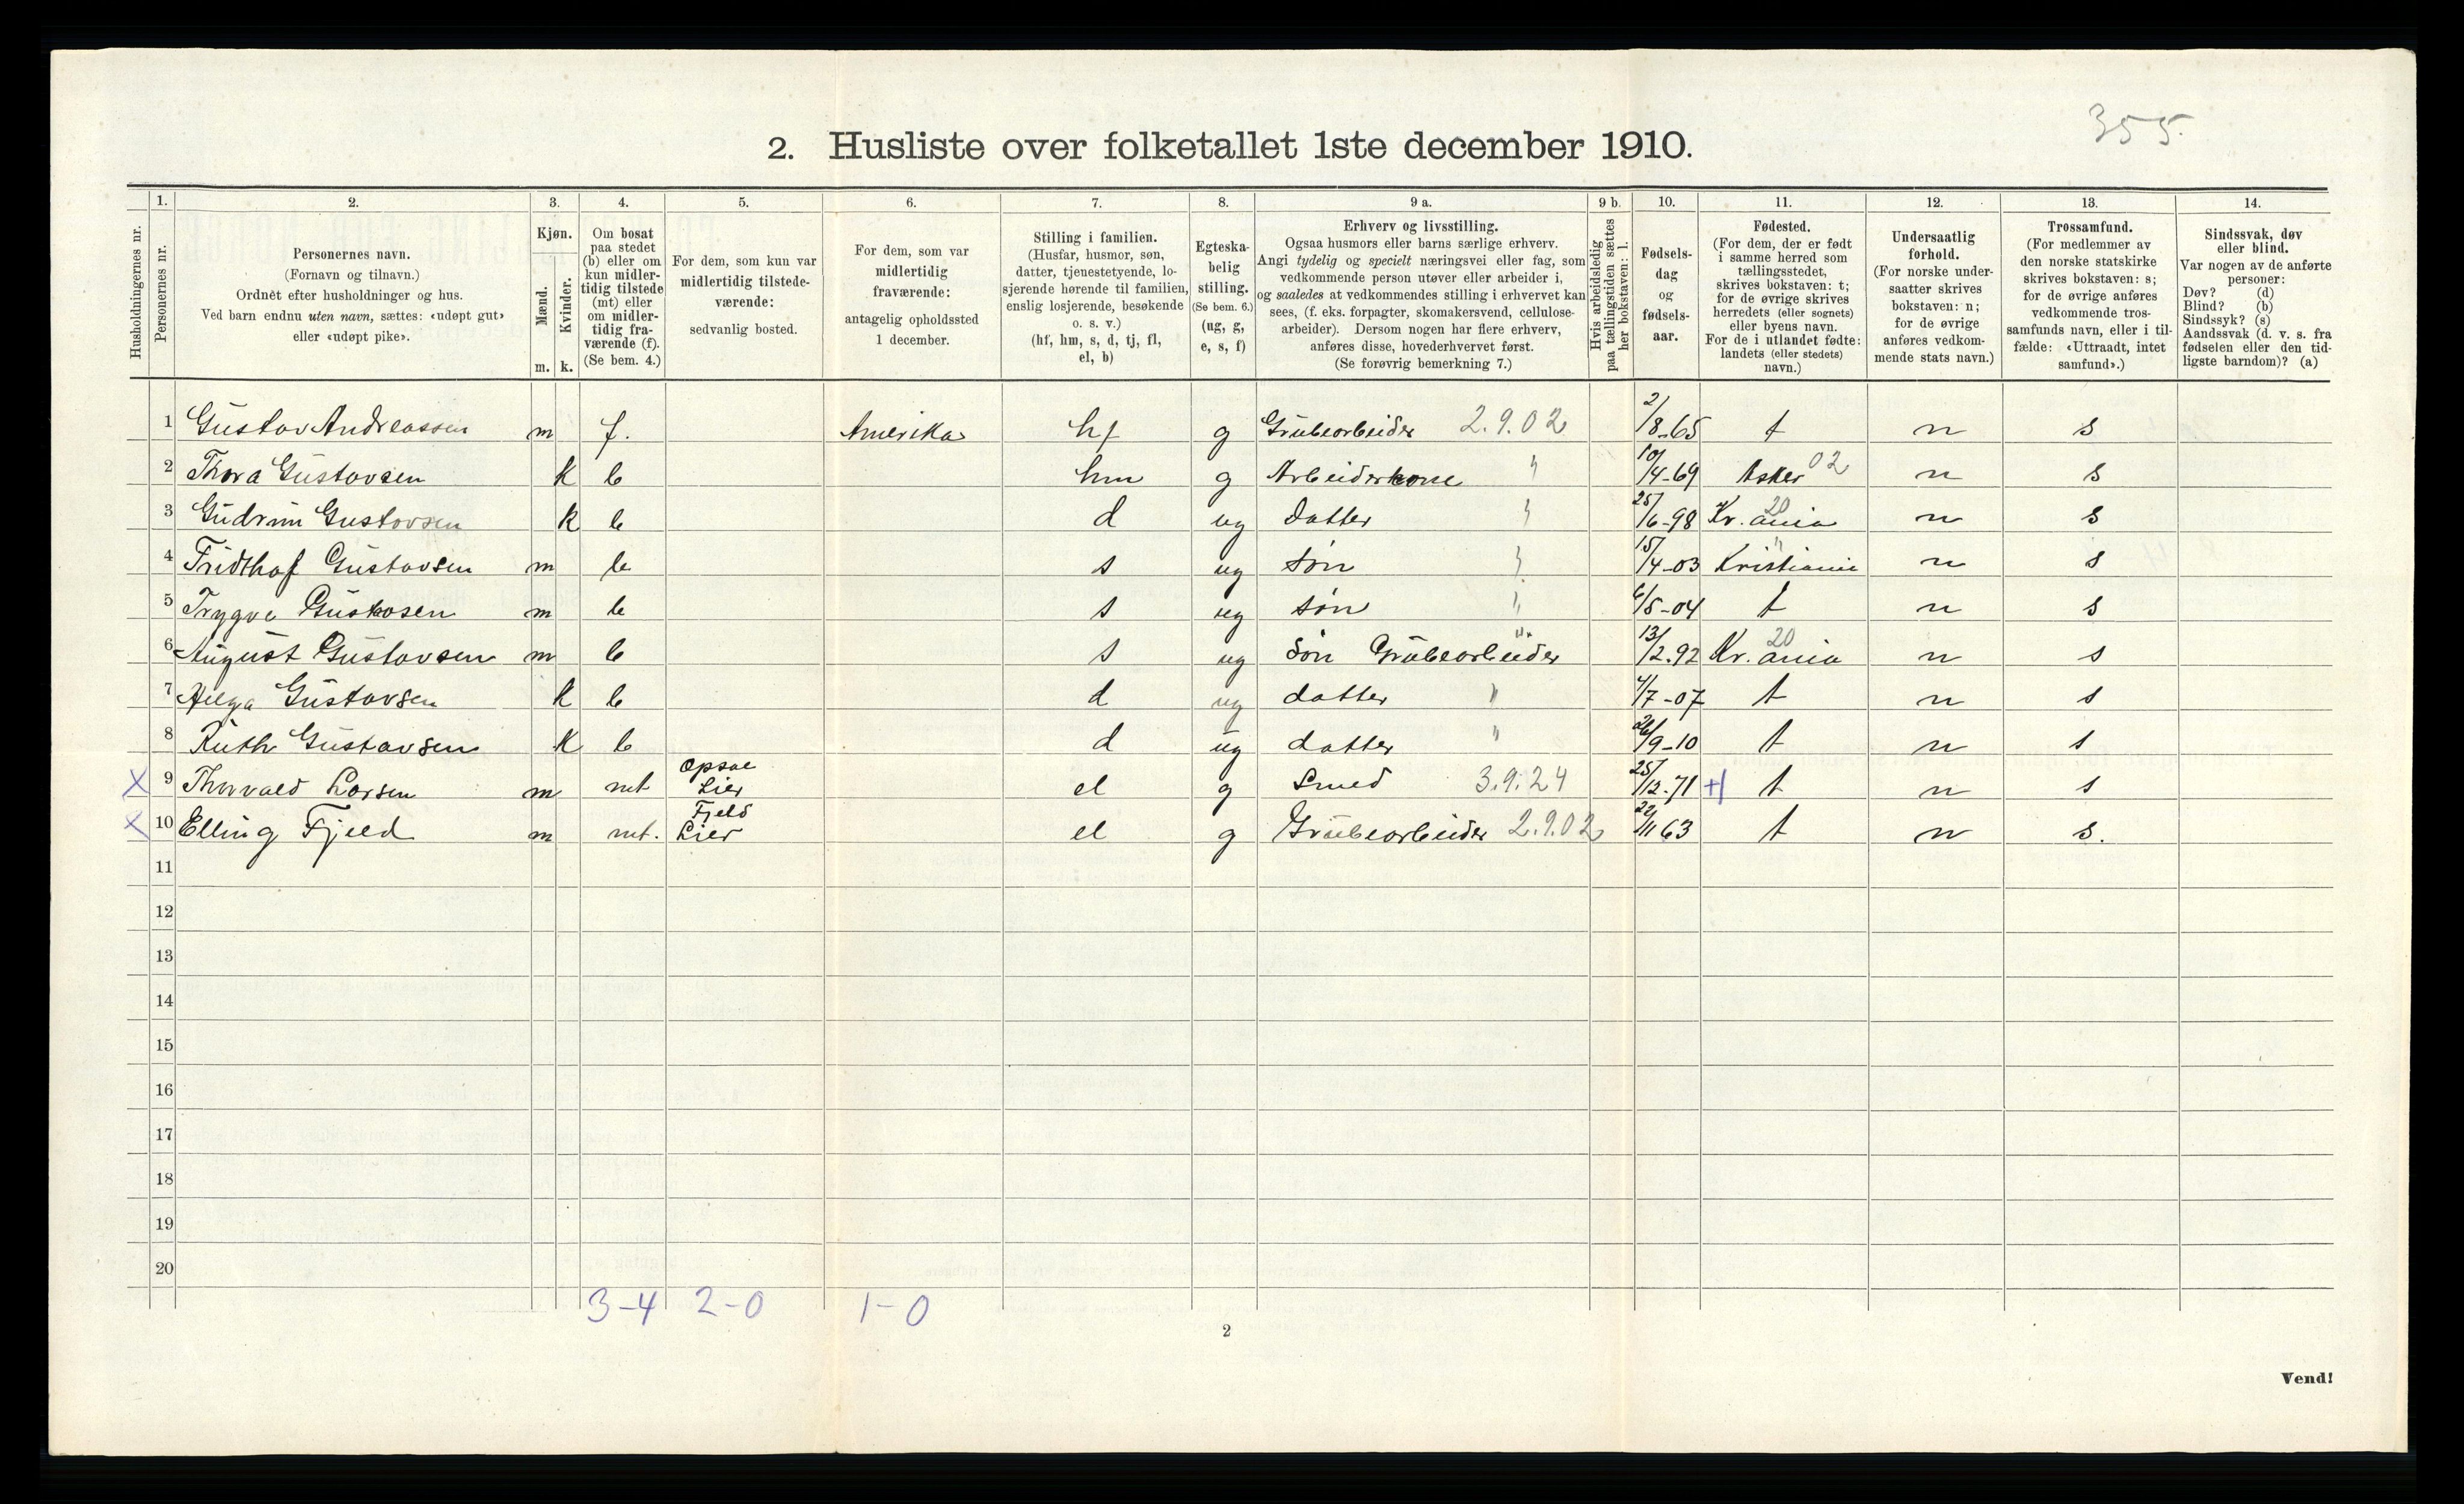 355.
2. Husliste over folketallet 1ste december 1910.
Husholdningernes nr.
1.
Personernes nr.
2.
Personernes navn.
(Fornavn og tilnavn.)
Ordnet efter husholdninger og hus.
Ved barn endnu uten navn, sættes: «udøpt gut»
eller «udøpt pike».
3.
Kjøn.
Mænd.
Kvinder.
m. k.
4.
Om bosat
paa stedet
(b) eller om
kun midler-
tidig tilstede
(mt) eller
om midler-
tidig fra-
værende (f).
(Se bem. 4.)
5.
For dem, som kun var
midlertidig tilstede-
værende:
sedvanlig bosted.
6.
For dem, som var
midlertidig
fraværende:
antagelig opholdssted
1 december.
7.
Stilling i familien.
(Husfar, husmor, søn,
datter, tjenestetyende, lo-
sjerende hørende til familien,
enslig losjerende, besøkende
o. s. v.)
(hf, hm, s, d, tj, fl,
el, b)
8.
Egteska-
belig
stilling.
(Se bem. 6.)
(ug, g,
e, s, f)
9 a.
Erhverv og livsstilling.
Ogsaa husmors eller barns særlige erhverv.
Angi tydelig og specielt næringsvei eller fag, som
vedkommende person utøver eller arbeider i,
og saaledes at vedkommendes stilling i erhvervet kan
sees, (f. eks. forpagter, skomakersvend, cellulose-
arbeider). Dersom nogen har flere erhverv,
anføres disse, hovederhvervet først.
(Se forøvrig bemerkning 7.)
9 b.
Hvis arbeidsledig
paa tællingstiden sættes
her bokstaven: l.
10.
Fødsels-
dag
og
fødsels-
aar.
11.
Fødested.
(For dem, der er født
i samme herred som
tællingsstedet,
skrives bokstaven: t;
for de øvrige skrives
herredets (eller sognets)
eller byens navn.
For de i utlandet fødte:
landets (eller stedets)
navn.)
12.
Undersaatlig
forhold.
(For norske under-
saatter skrives
bokstaven: n;
for de øvrige
anføres vedkom-
mende stats navn.)
13.
Trossamfund.
(For medlemmer av
den norske statskirke
skrives bokstaven: s;
for de øvrige anføres
vedkommende tros-
samfunds navn, eller i til-
fælde: «Uttraadt, intet
samfund».)
14.
Sindssvak, døv
eller blind.
Var nogen av de anførte
personer:
Døv? (d)
Blind? (b)
Sindssyk? (s)
Aandssvak (d. v. s. fra
fødselen eller den tid-
ligste barndom)? (a)
1 Gustav Andreassen m f. Amerika hf g Grubearbeider 2.9.02 2/8-65 t n s
2 Thora Gustavsen k b hm g Arbeiderkone " 10/4-69 Asker 02 n s
3 Gudrun Gustavsen k b d ug datter " 25/6-98 Kr. ania 20 n s
4 Fridthof Gustavsen m b s ug søn " 15/4-03 Kristiania " n s
5 Trygve Gustavsen m b s ug søn " 6/5-04 t n s
6 August Gustavsen m b s ug Søn Grubearbeider " 13/2.92 Kr. ania 20 n s
7 Helga Gustavsen k b d ug datter " 4/7-07 t n s
8 Ruth Gustavsen k b d ug datter " 26/9-10 t n s
x 9 Thorvald Larsen m mt Opsal Lier el g Smed 3.9.24 25/12-71 + t n s
x 10 Elling Fjeld m mt. Fjeld Lier el g Grubearbeider 2.9.02 22/11 63 t n s.
11
12
13
14
15
16
17
18
19
20
3-4 2-0 1-0
2
Vend!